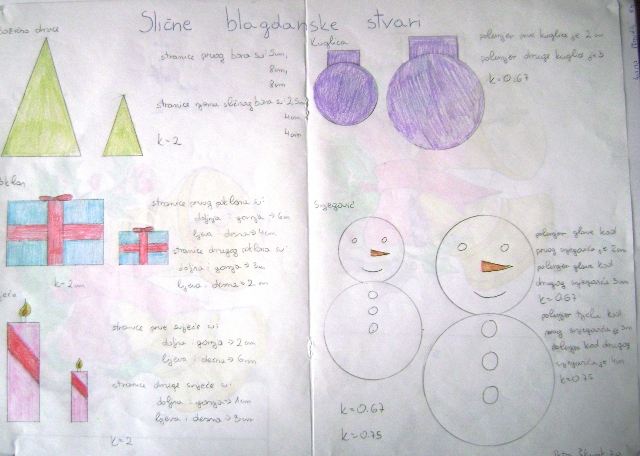 Slične blagdanske stvari
stranice prvog bora su: 5cm,
8cm,
8cm
stranice njemu sličnog bora su 2,5cm
4cm
4cm
k=2
stranice prvog poklona su:
doljna i gornja → 6cm
ljeva i desna → 4cm
stranice drugog poklona su:
doljna i gornja → 3cm
ljeva i desna → 2cm
k=2
stranice prve svijeće su:
doljna i gornja → 2cm
ljeva i desna → 6cm
stranice druge svijeće su:
doljna i gornja → 1cm
ljeva i desna → 3cm
k=2
Kuglica
polumjer prve kuglice je 2cm
polumjer druge kuglice je 3
k=0.67
Snjegović
polumjer glave kod
prvog snjegovića je 2cm
polumjer glave kod
drugog snjegovića 3cm
k=0.67
polumjer tijela kod
prvog snjegovića je 3cm
polumjer kod drugog
snjegovića je 4cm
k=0.75
k=0.67
k=0.75